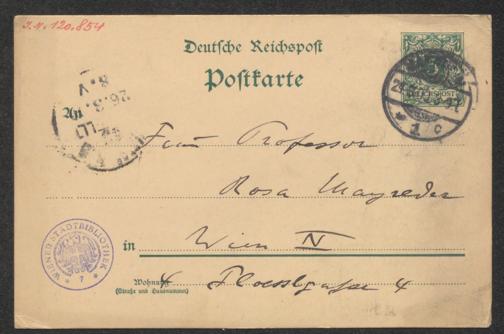 J.N. 120.854
Deutsche Reichspost
Postkarte
REICHSPOST
8.V.
26.3.
An
1 c
Frau Professor
Rosa Mayreder
in Wien IV
Wohnung
(Straße und Hausnummer)
Plösslgasse 4
WIENER STADTBIBLIOTHEK
7